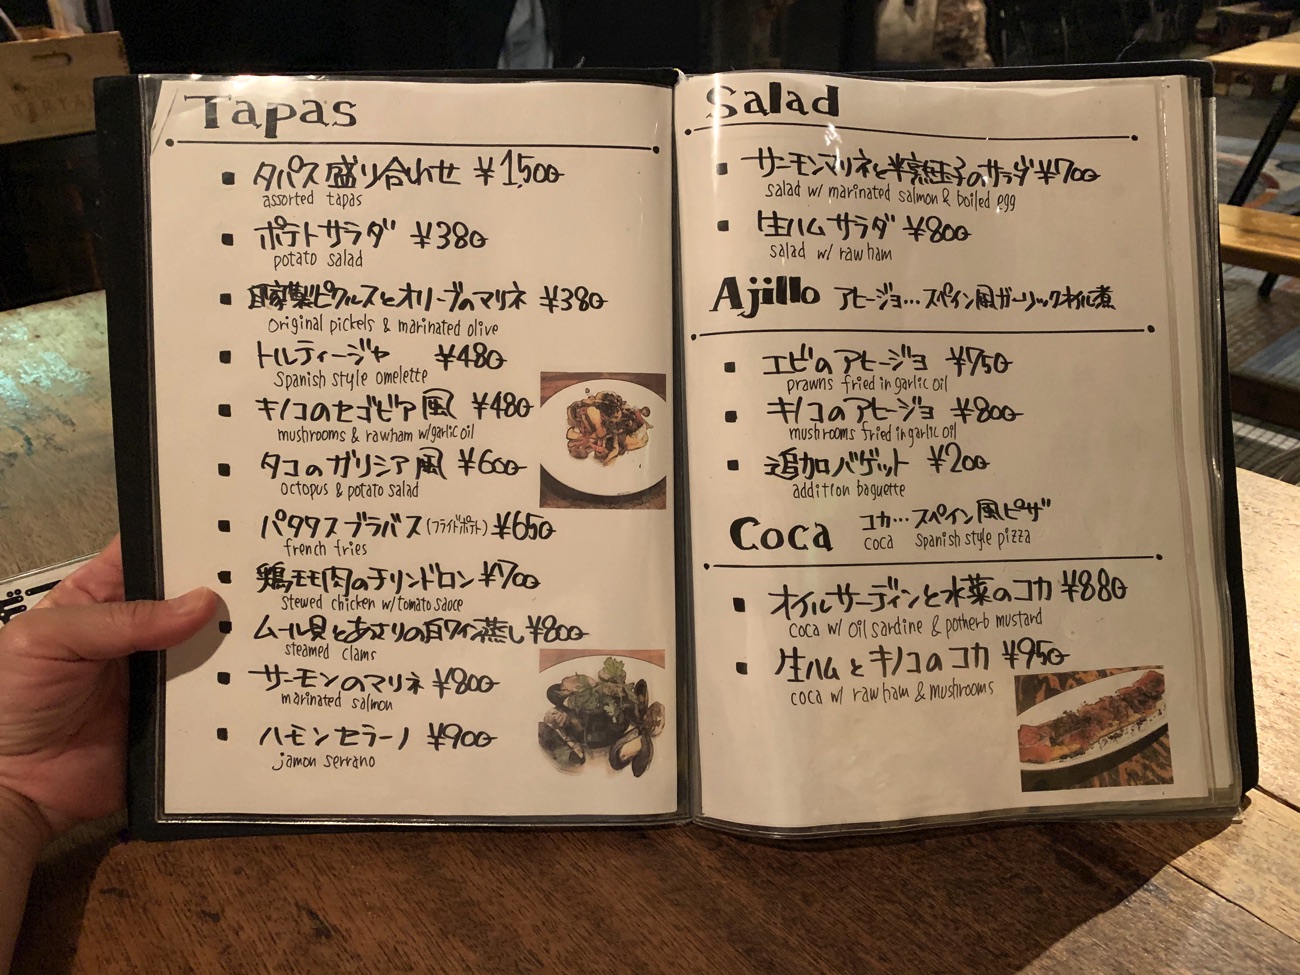 Tapas
タパス盛り合わせ ¥1,500
assorted tapas
ポテトサラダ ¥380
potato salad
自家製ピクルスとオリーブのマリネ ¥380
original pickels & marinated olive
トルティージャ ¥480
Spanish style omelette
キノコのセゴビア風 ¥480
mushrooms & rawham w/garlic oil
タコのガリシア風 ¥600
octopus & potato salad
パタタスブラバス(フライドポテト) ¥650
french fries
鶏モモ肉のチリンドロン ¥700
stewed chicken w/tomato sauce
ムール貝とあさりの白ワイン蒸し ¥800
steamed clams
サーモンのマリネ ¥800
marinated salmon
ハモンセラーノ ¥900
jamon serrano
Salad
サーモンマリネと半熟玉子のサラダ ¥700
salad w/ marinated salmon & boiled egg
生ハムサラダ ¥800
salad w/ raw ham
Ajillo アヒージョ…スペイン風ガーリックオイル煮
エビのアヒージョ ¥750
prawns fried in garlic oil
キノコのアヒージョ ¥800
mushrooms fried in garlic oil
追加バゲット ¥200
addition baguette
Coca コカ…スペイン風ピザ
coca Spanish style pizza
オイルサーディンと水菜のコカ ¥880
coca w/ oil sardine & potherb mustard
生ハムとキノコのコカ ¥950
coca w/ raw ham & mushrooms